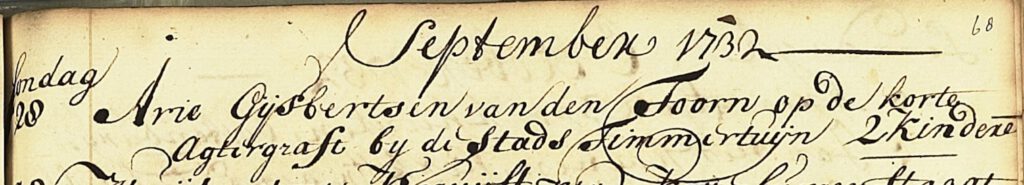 September 1732
68
Sondag
28 Arie Gijsbertsen van den Toorn op de korte
Agtergraft by de Stads Timmertuijn 2 Kinderē